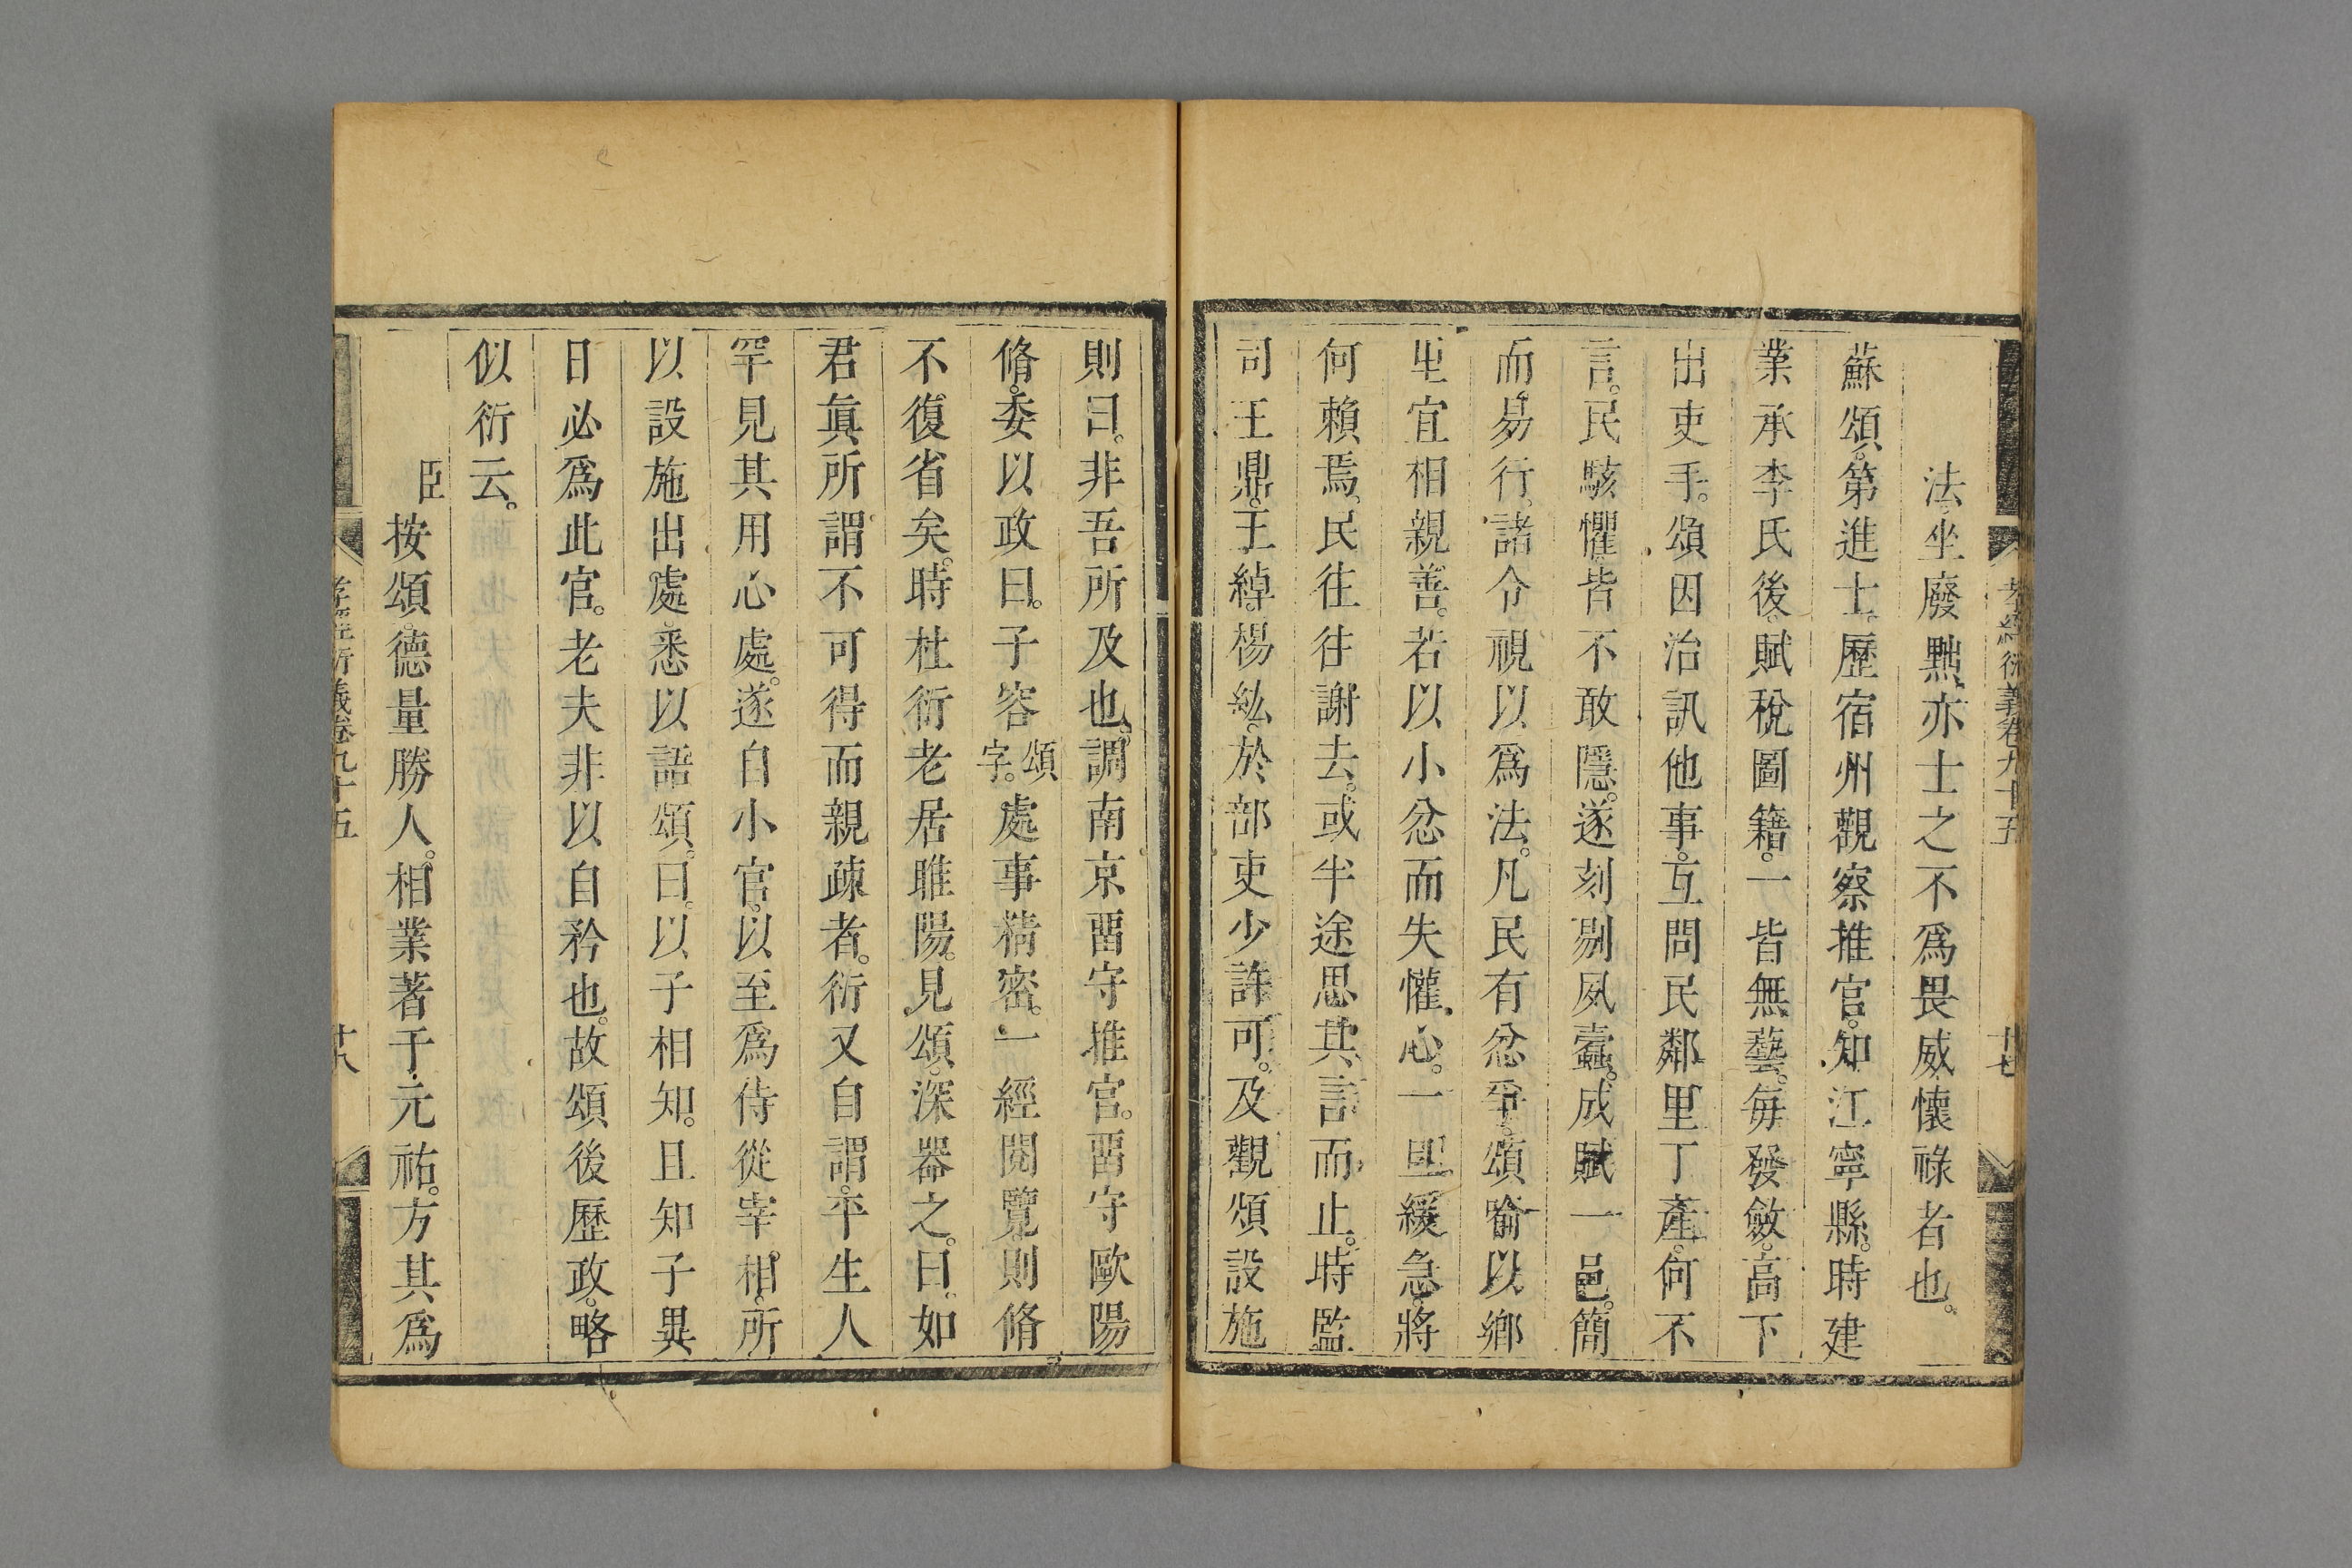 孝經衍義卷九十五 十七
法坐廢黜亦士之不爲畏威懷祿者也。
蘇頌。第進士。歷宿州觀察推官。知江寧縣。時建
業承李氏後。賦稅圖籍。一皆無藝。每發斂。高下
出吏手。頌因治訊他事。互問民鄰里丁產。何不
言。民駭懼。皆不敢隱。遂刻剔夙蠹。成賦一邑。簡
而易行。諸令視以爲法。凡民有忿爭。頌喻以鄉
里宜相親善。若以小忿而失懽心。一旦緩急。將
何賴焉。民往往謝去。或半途思其言而止。時監
司王鼎。王綽。楊紘。於部吏少許可。及觀頌設施
則曰。非吾所及也。調南京留守推官。留守歐陽
脩。委以政曰。子容頌字。處事精密。一經閱覽。則脩
不復省矣。時杜衍老居睢陽。見頌。深器之。曰。如
君眞所謂不可得而親疎者。衍又自謂。平生人
罕見其用心處。遂自小官。以至爲侍從宰相。所
以設施出處。悉以語頌。曰。以子相知。且知子異
日必爲此官。老夫非以自矜也。故頌後歷政。略
似衍云。
臣按頌。德量勝人。相業著于元祐。方其爲
孝經衍義卷九十五 十八